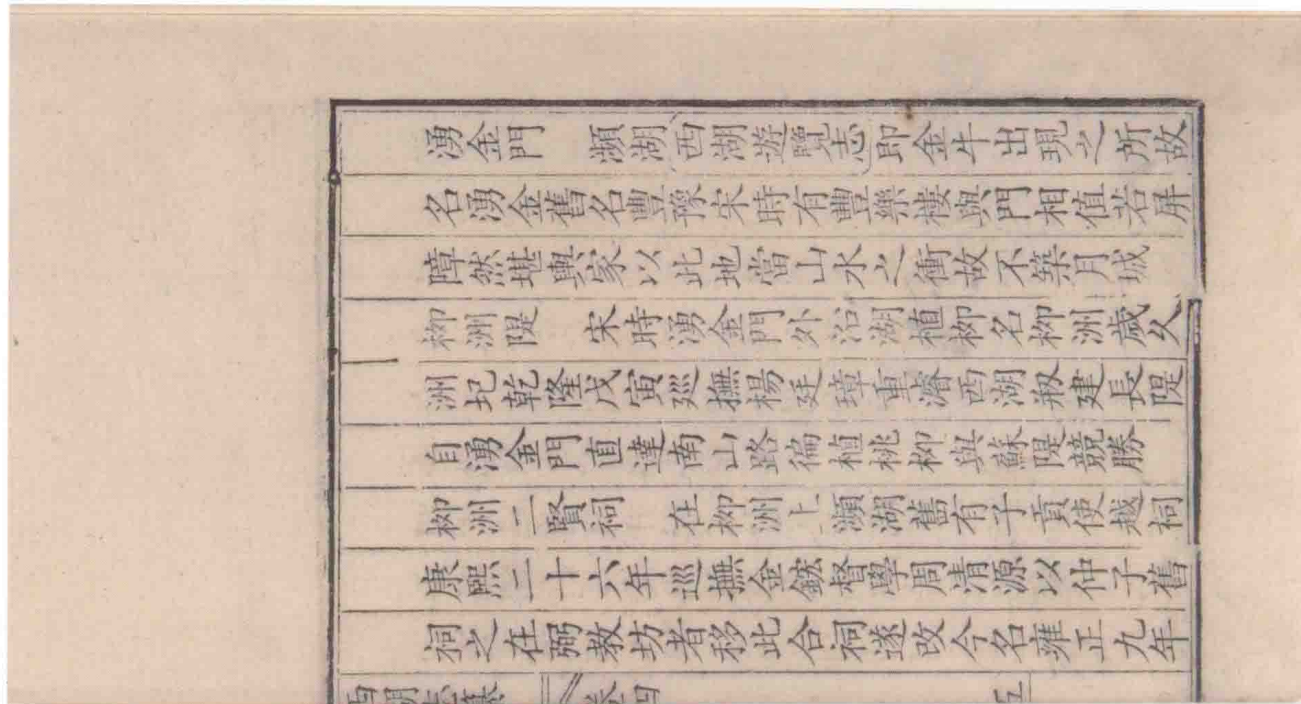 湧金門　瀕湖西湖遊覽志即金牛出現之所故
名湧金舊名豐豫宋時有豐樂樓與門相值若屏
障然堪輿家以此地當山水之衝故不築月城
柳洲隄　宋時湧金門外沿湖植柳名柳洲歲久
洲圮乾隆戊寅廵撫楊廷璋重濬西湖剏建長隄
自湧金門直達南山路徧植桃柳與蘇隄競勝
柳洲二賢祠　在柳洲上瀕湖舊有子貢使越祠
康熙二十六年巡撫金鋐督學周清源以仲子舊
祠之在弼教坊者移此合祠遂改今名雍正九年
西湖志纂　卷四　五